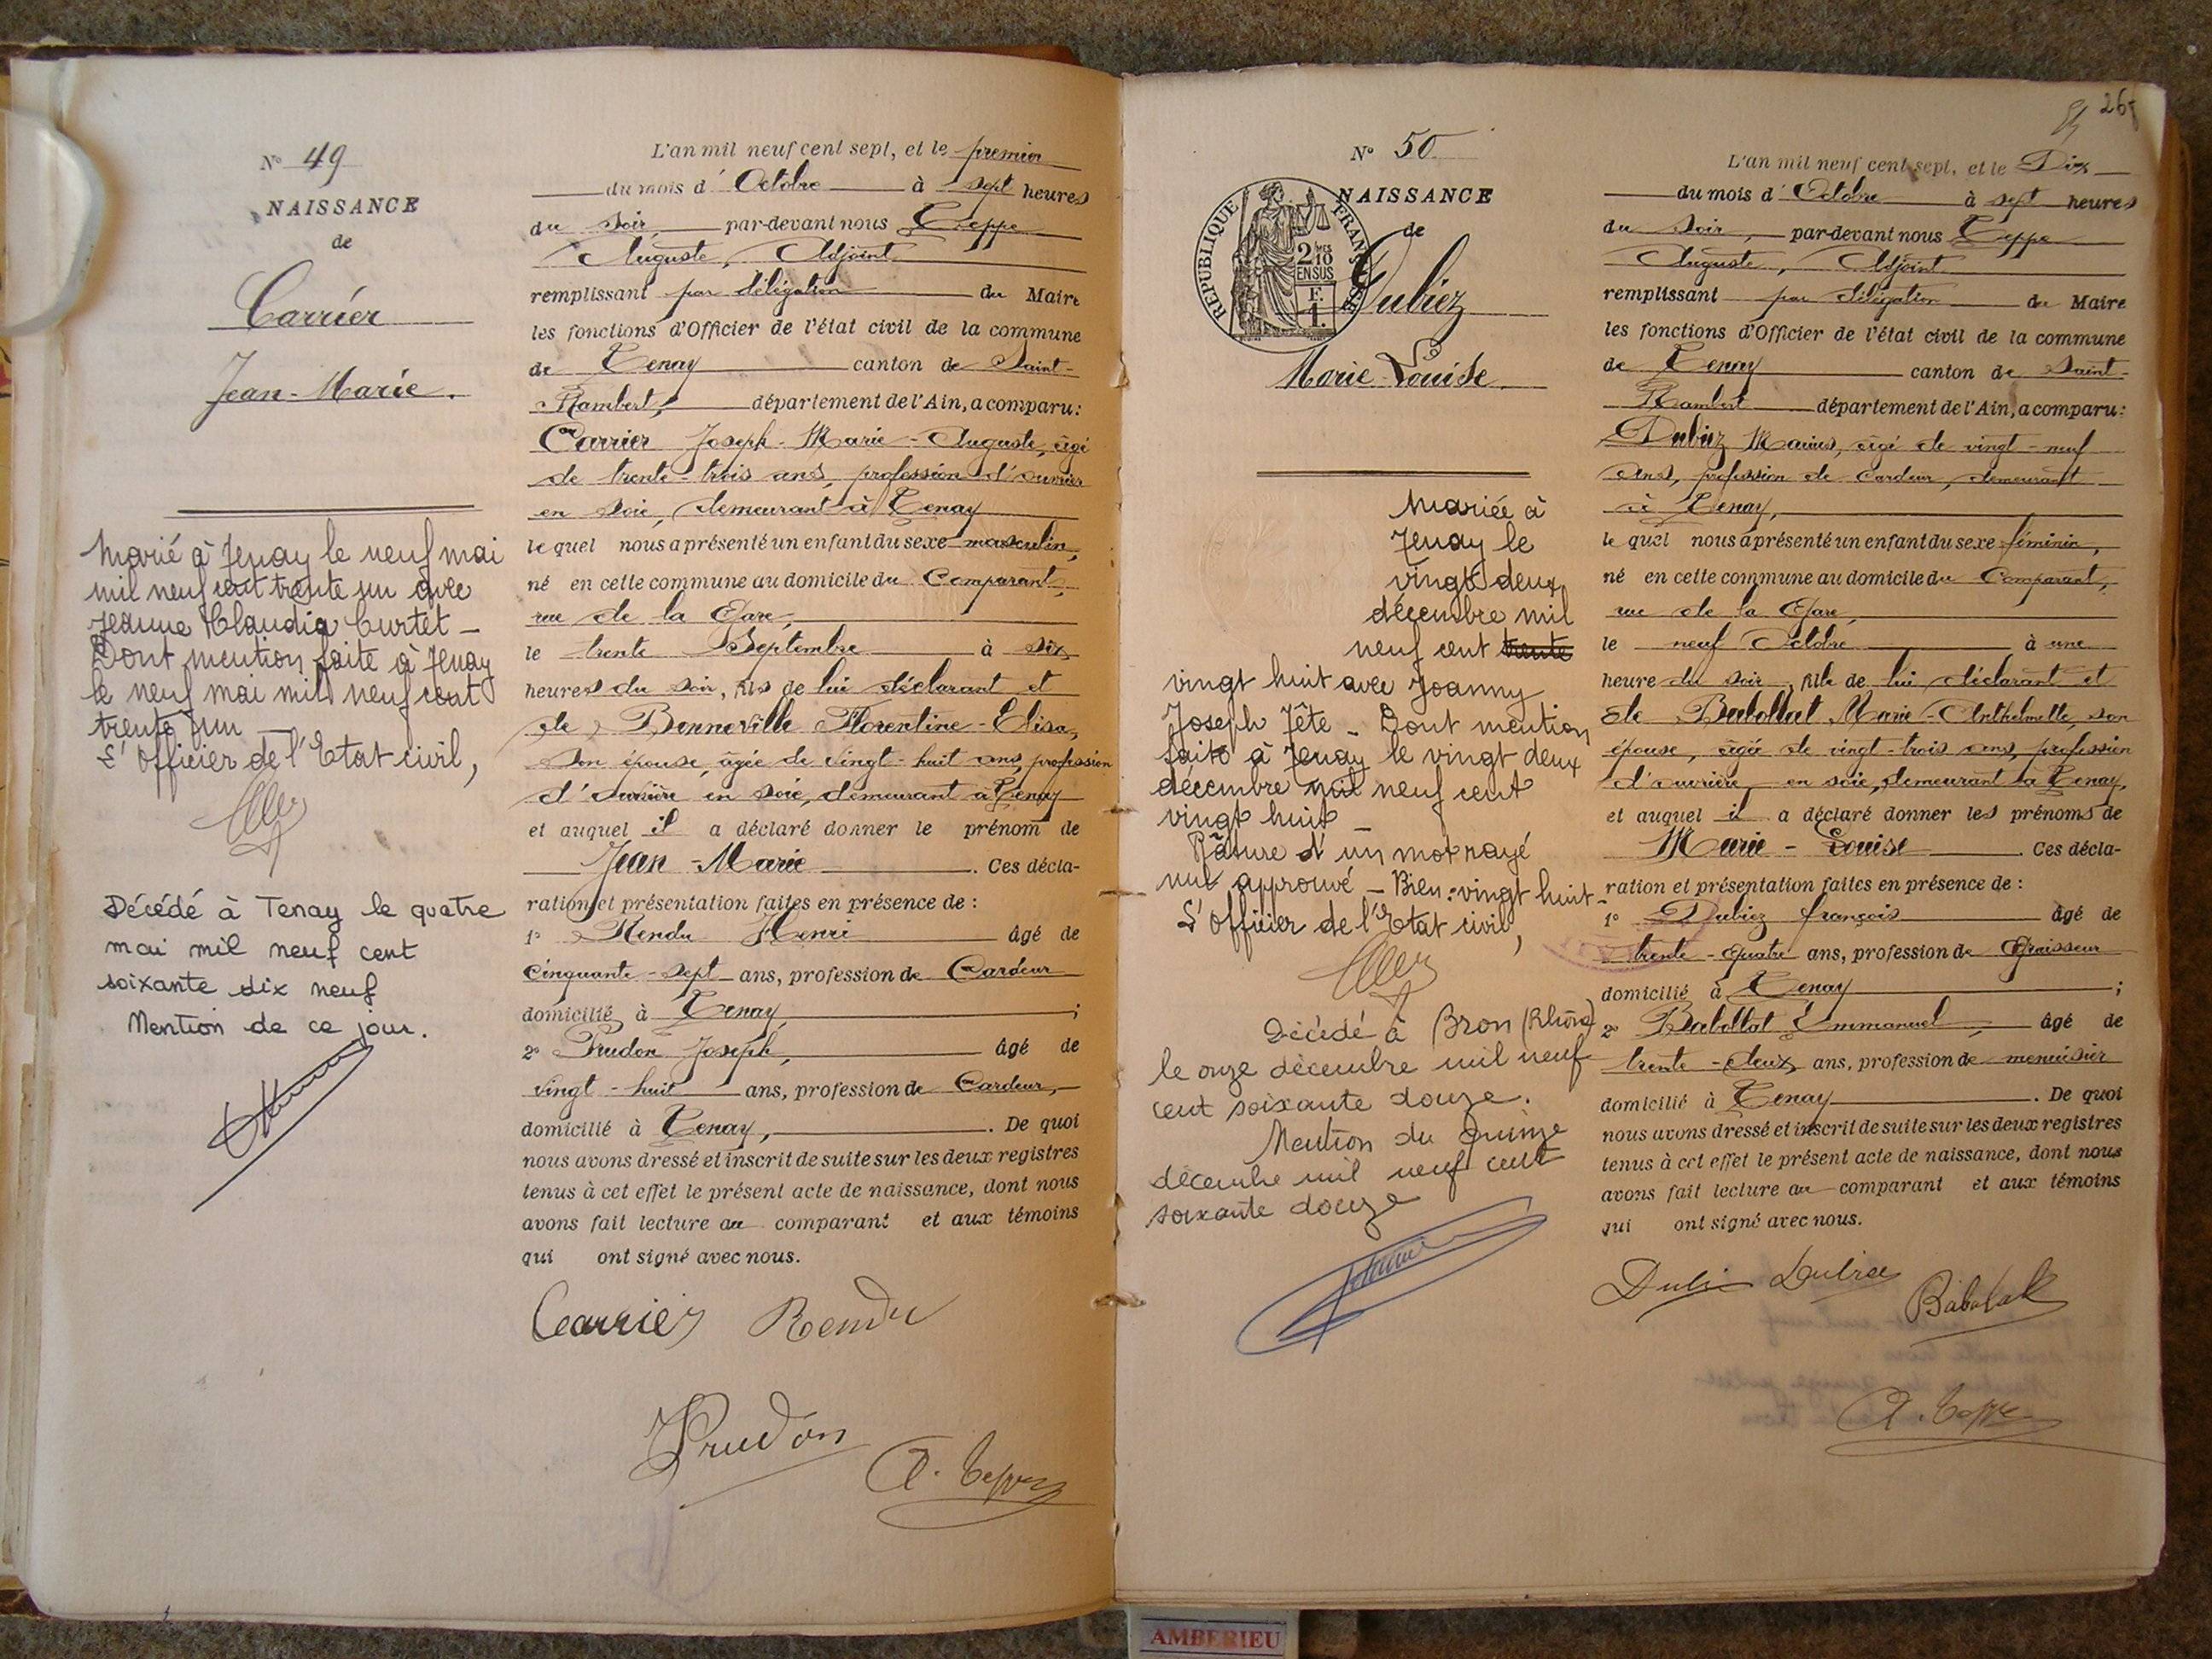 N° 49
NAISSANCE
de
Carrier
Jean-Marie.
Marié à Tenay le neuf mai
mil neuf cent trente un avec
Jeanne Claudia Curtet -
Dont mention faite à Tenay
le neuf mai mil neuf cent
trente un -
L'Officier de l'Etat civil,
Décédé à Tenay le quatre
mai mil neuf cent
soixante dix neuf
Mention de ce jour.
L'an mil neuf cent sept, et le premier
du mois d'Octobre à sept heures
du soir, par-devant nous Teppe
Auguste, Adjoint
remplissant par délégation du Maire
les fonctions d'Officier de l'état civil de la commune
de Tenay canton de Saint-
Rambert, département de l'Ain, a comparu:
Carrier Joseph-Marie-Auguste, âgé
de trente-trois ans, profession d'ouvrier
en soie, demeurant à Tenay
lequel nous a présenté un enfant du sexe masculin,
né en cette commune au domicile du Comparant,
rue de la Gare,
le trente Septembre à six
heures du soir, fils de lui déclarant et
de Bonneville Florentine-Elisa,
son épouse, âgée de vingt-huit ans, profession
d'ouvrière en soie, demeurant à Tenay
et auquel il a déclaré donner le prénom de
Jean-Marie. Ces décla-
ration et présentation faites en présence de :
1° Rendu Henri âgé de
cinquante-sept ans, profession de Cardeur
domicilié à Tenay ;
2° Prudon Joseph, âgé de
vingt-huit ans, profession de Cardeur,
domicilié à Tenay, . De quoi
nous avons dressé et inscrit de suite sur les deux registres
tenus à cet effet le présent acte de naissance, dont nous
avons fait lecture au comparant et aux témoins
qui ont signé avec nous.
Carrier Rendu
Prudon
A. Teppe
265
N° 50
NAISSANCE
de
REPUBLIQUE FRANÇAISE
Dubiez
Marie-Louise
Mariée à
Tenay le
vingt deux
décembre mil
neuf cent trente
vingt huit avec Joanny
Joseph Tête - Dont mention
faite à Tenay le vingt deux
décembre mil neuf cent
vingt huit -
Rature d'un mot rayé
nul approuvé - Bien : vingt huit -
L'Officier de l'Etat civil,
Décédé à Bron (Rhône)
le onze décembre mil neuf
cent soixante douze.
Mention du quinze
décembre mil neuf cent
soixante douze
L'an mil neuf cent sept, et le Dix
du mois d'Octobre à sept heures
du soir, par-devant nous Teppe
Auguste, Adjoint
remplissant par délégation du Maire
les fonctions d'Officier de l'état civil de la commune
de Tenay canton de Saint-
Rambert département de l'Ain, a comparu:
Dubiez Marius, âgé de vingt-neuf
ans, profession de Cardeur, demeurant
à Tenay,
lequel nous a présenté un enfant du sexe féminin,
né en cette commune au domicile du Comparant,
rue de la Gare,
le neuf Octobre à une
heure du soir, fille de lui déclarant et
de Babollat Marie-Anthelmette, son
épouse, âgée de vingt-trois ans, profession
d'ouvrière en soie, demeurant à Tenay,
et auquel il a déclaré donner les prénoms de
Marie-Louise. Ces décla-
ration et présentation faites en présence de :
1° Dubiez françois âgé de
trente-quatre ans, profession de Graisseur
domicilié à Tenay ;
2° Babollat Emmanuel, âgé de
trente-deux ans, profession de menuisier
domicilié à Tenay . De quoi
nous avons dressé et inscrit de suite sur les deux registres
tenus à cet effet le présent acte de naissance, dont nous
avons fait lecture au comparant et aux témoins
qui ont signé avec nous.
Babolat
A. Teppe
AMBERIEU